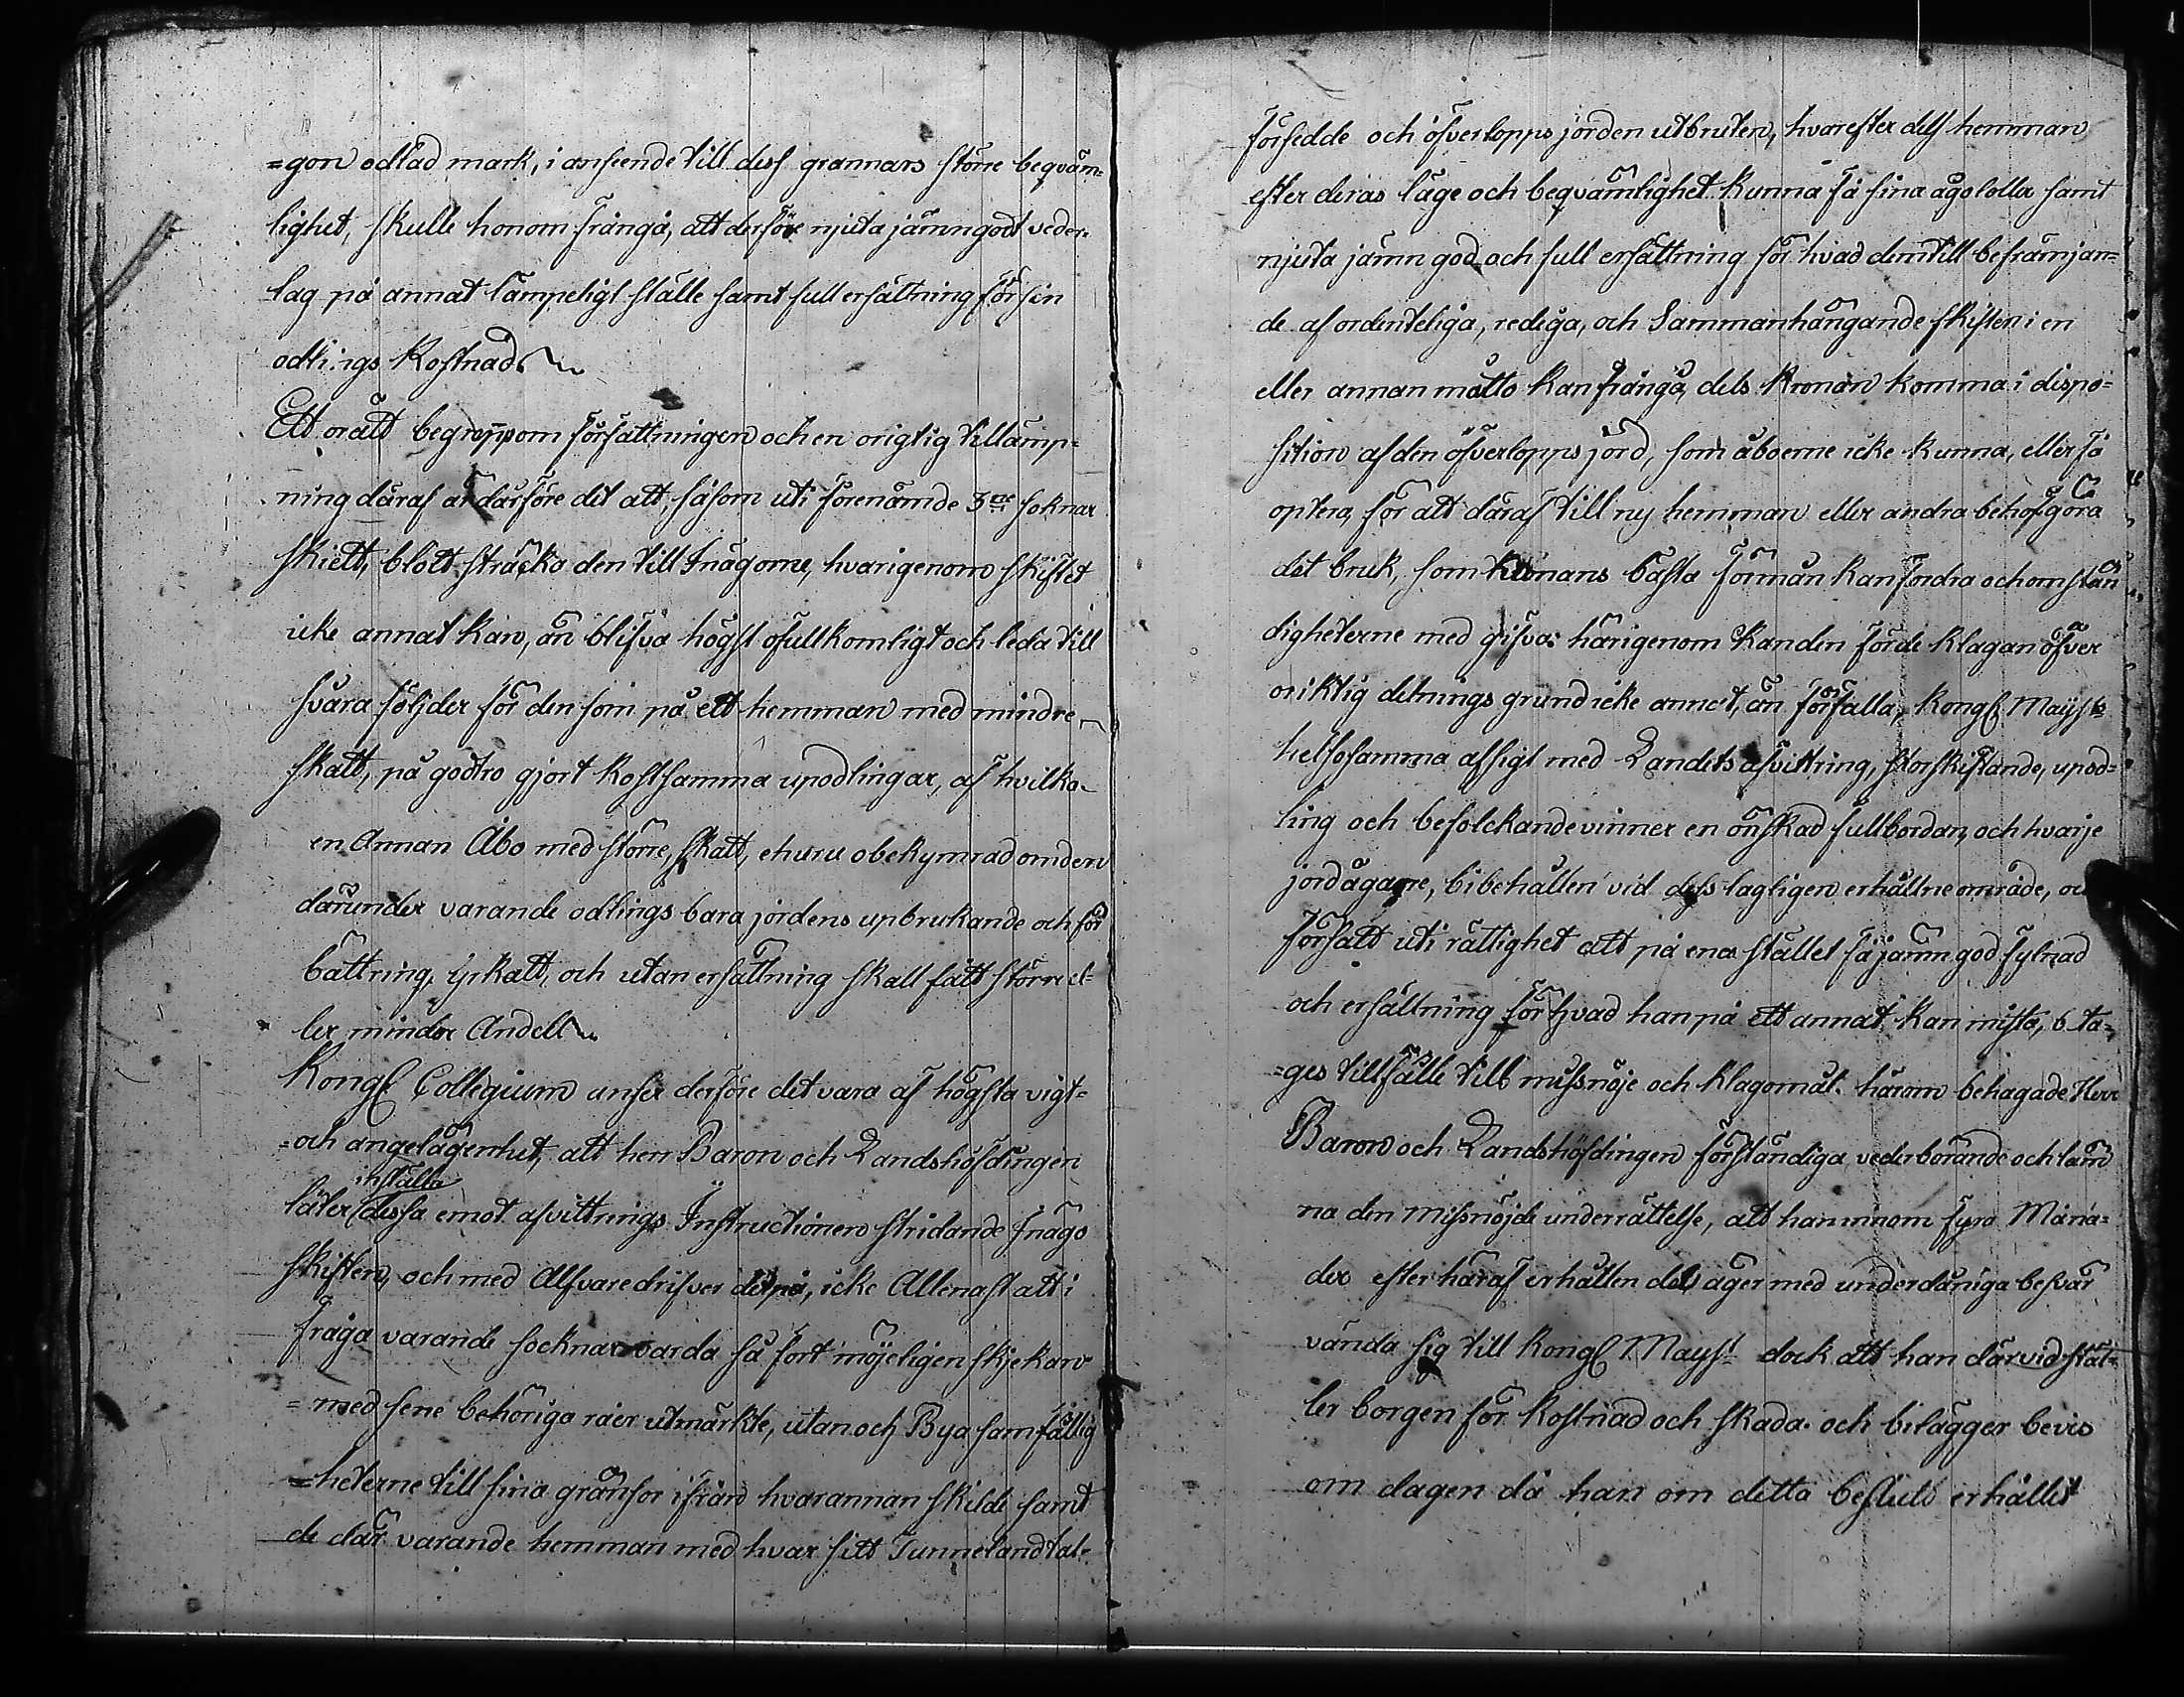 =gon odlad mark, i anseende till dess grannars större beqväm=
lighet, skulle honom frångå, att derföre njuta jämngodt veder=
lag på annat lämpeligt ställe samt full ersättning för sin
odlings kostnad
Ett orätt begrepp om författningen och en origtig tillämp=
ning däraf är därföre det att, såsom uti förenämde 3ne soknar
skiett, blott sträcka den till Inägorne, hvarigenom skiftet
icke annat kan, än blifva högst ofullkomligt och leda till
svåra följder för den som på ett hemman med mindre
skatt, på godtro gjort kostsamma upodlingar, af hvilka
en Annan Åbo med större skatt, ehuru obekymrad om den
därunder varande odlingsbara jordens upbrukande och för
bättring, yrkatt, och utan ersättning skall fått större el=
ler mindre Andel
Kongl Collegium anser derföre det vara af högsta vigt=
=och angelägenhet, att herr Baron och Landshöfdingen
inställa
låter dessa emot afvittrings Instructionen stridande Inägo
skiften, och med Alfvare drifver det på, icke Allenast att i
fråga varande socknar varda så fort möjeligen skje kan
=med sene behöriga råer utmärkte, utan och Bya samfällig
=heterne till sina gränsor ifrån hvarannan skilde samt
de där varande hemman med hvar sitt Tunnelandtal=
försedde och öfverlopps jorden utbruten, hvarefter dess hemman
efter deras läge och beqvämlighet kunna få sina ägolotter samt
njuta jämn god och full ersättning för hvad dem till befrämjan=
de af ordenteliga, rediga, och Sammanhängande skiften i en
eller annan måtto kan frångå, dels Kronan komma i dispo=
sition af den öfverlopps jord, som åboerne icke kunna, eller få
optera, för att däraf till ny hemman eller andra behof göra
det bruk, som Kronans bästa förmån kan fordra och omstän
digheterne med gifva: härigenom kan den förde klagan öfver
oriktig delnings grund icke annat, än förfalla, Kongl Mayjts
hälsosamma afsigt med Landets afvittring, storskiftande, upod=
ling och befolckande vinner en önskad fullbordan, och hvarje
jordägare, bibehållen vid dess lagligen erhållne område, och
försatt uti rättighet att på ena stället få jämn god fylnad
och ersättning för hvad han på ett annat kan mista, b ta=
=ges tillfälle till missnöje och klagomål. härom behagade Herr
Baron och Landshöfdingen förständiga vederbörande och läm
na den missnöjde underrättelse, att han innom fyra Måna=
der efter häraf erhållen del äger med underdåniga besvär
vända sig till Kongl Mayst dock att han därvid stäl=
ler borgen för kostnad och skada och bilägger bevis
om dagen då han om detta beslut erhållit